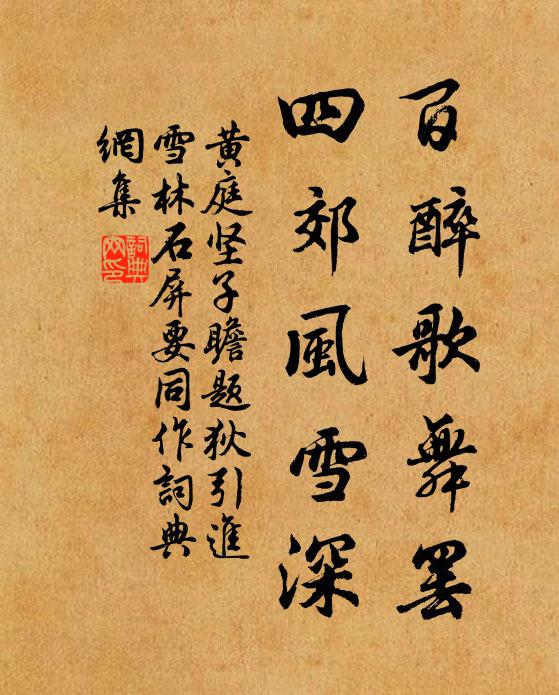 百醉歌舞罢
四郊風雪深
黄庭坚子瞻题狄引進
雪林石屏要同作詞典
網集
詞典網印